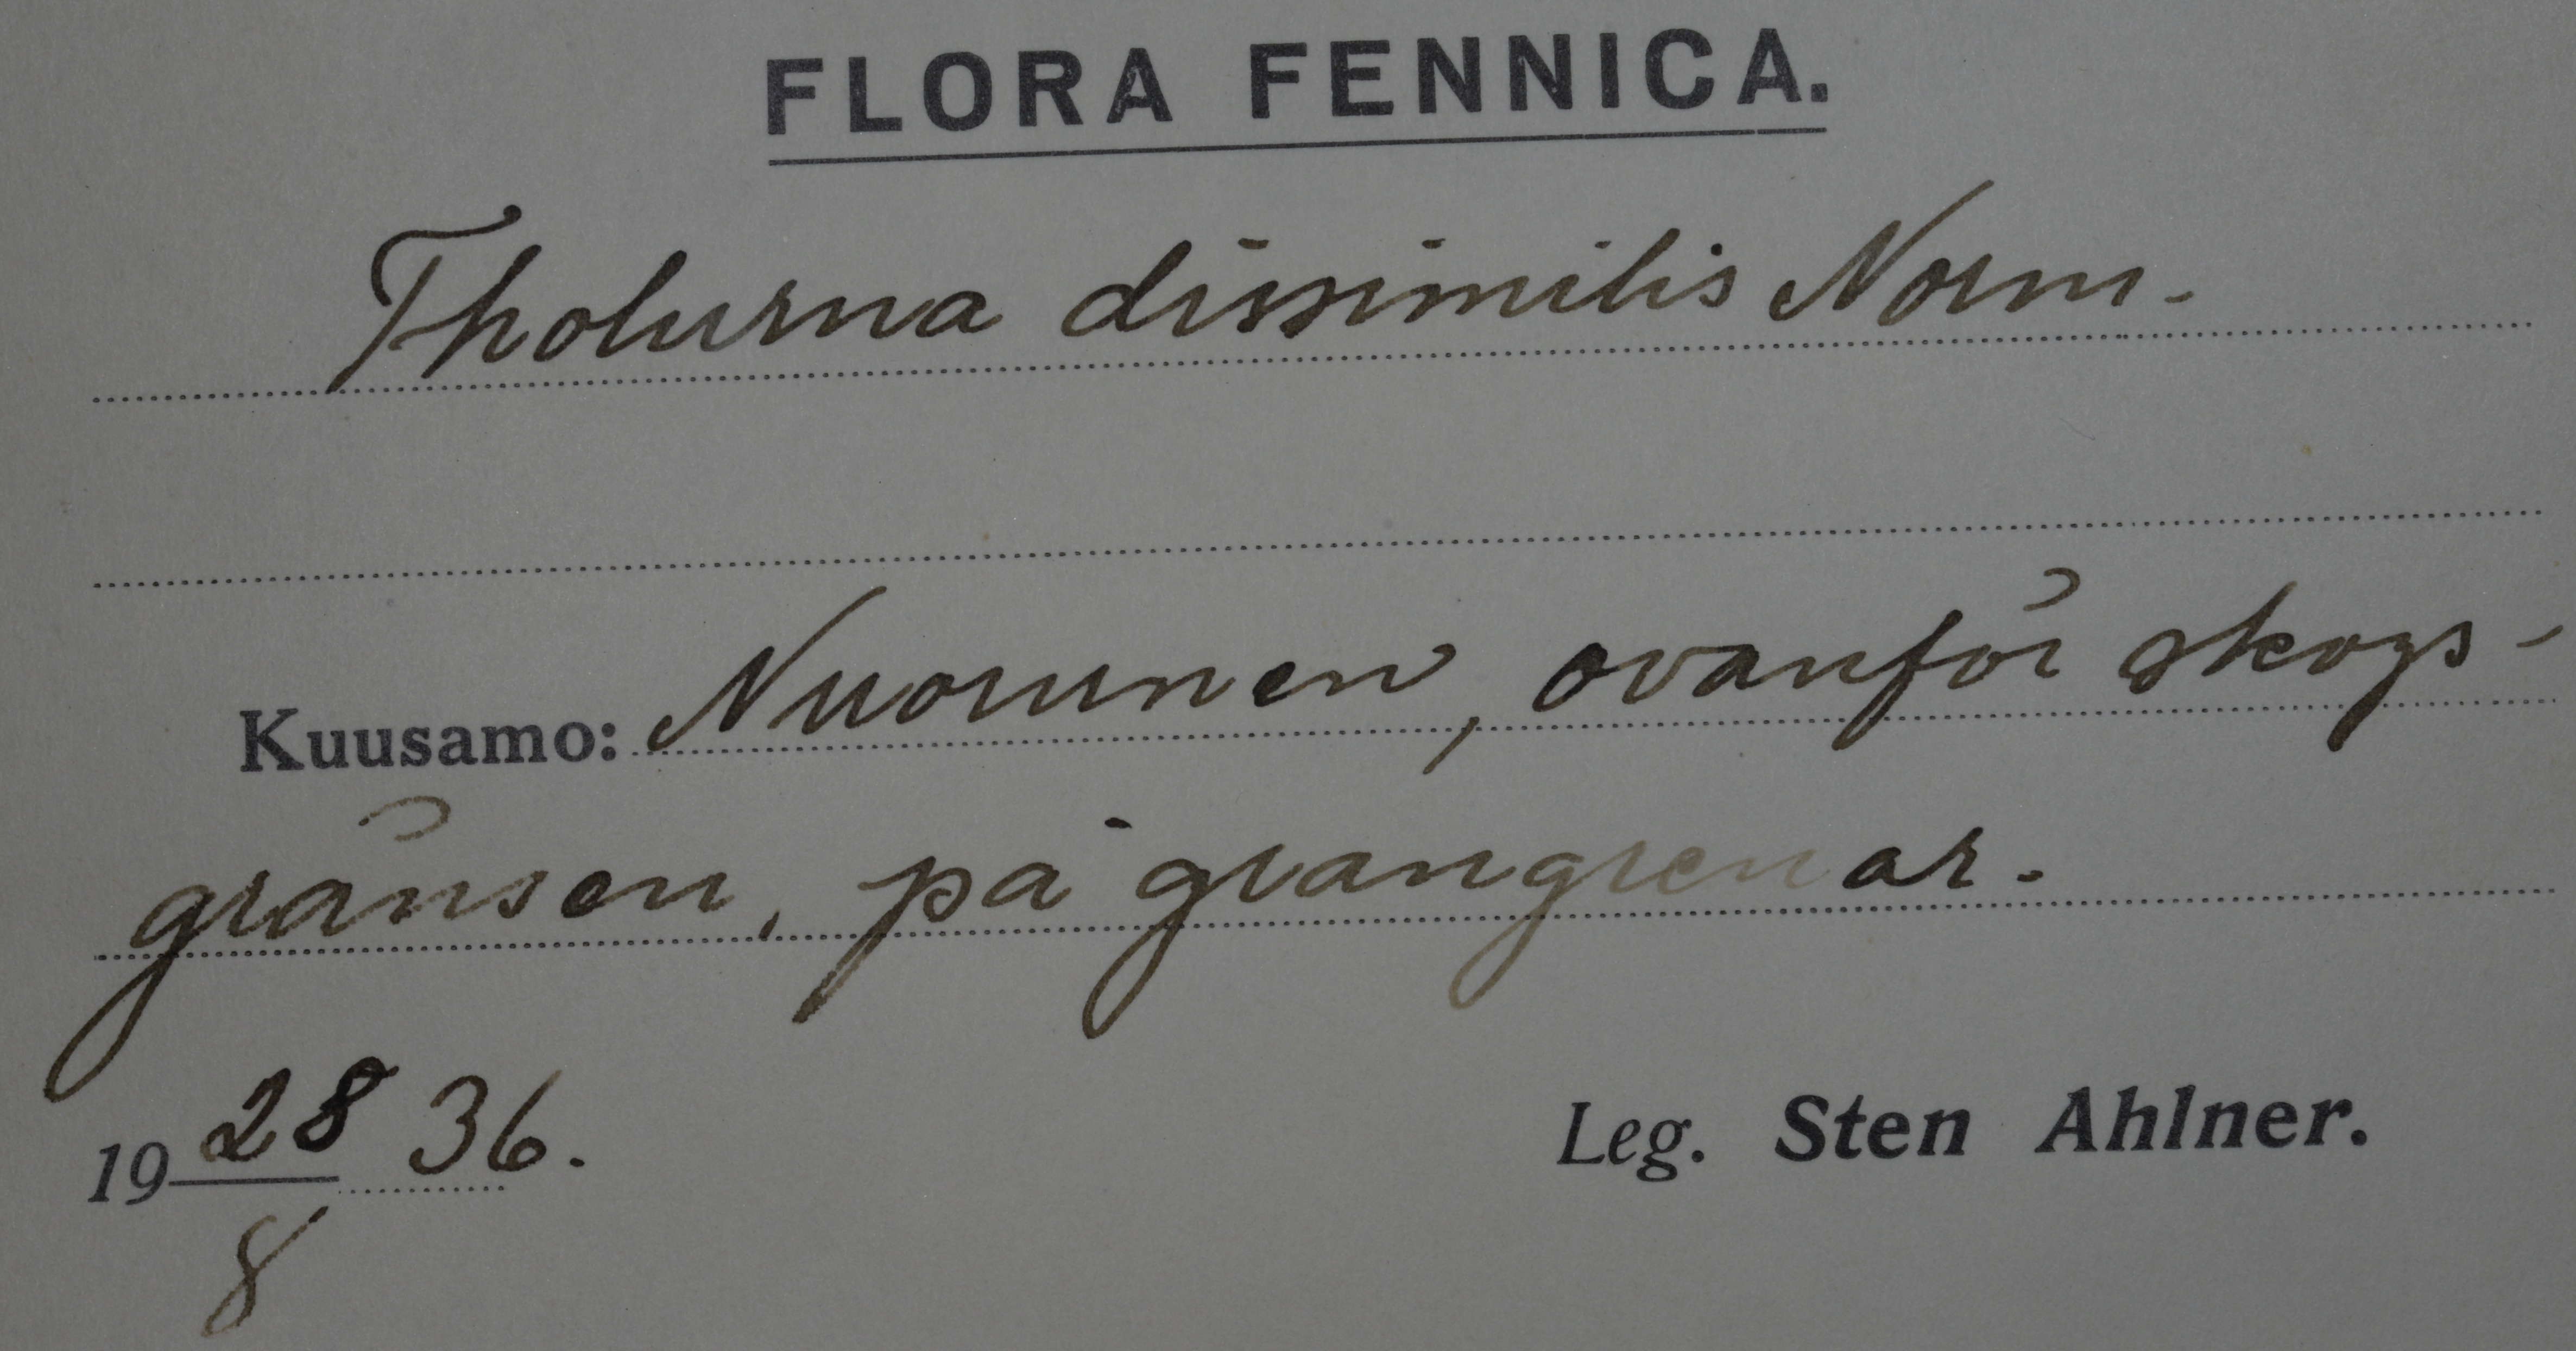 FLORA FENNICA.
Tholurna dissimilis Norm.
Kuusamo: Nuorunen, ovanför skogs-
gränsen, på grangrenar.
19 28/8 36.
Leg. Sten Ahlner.